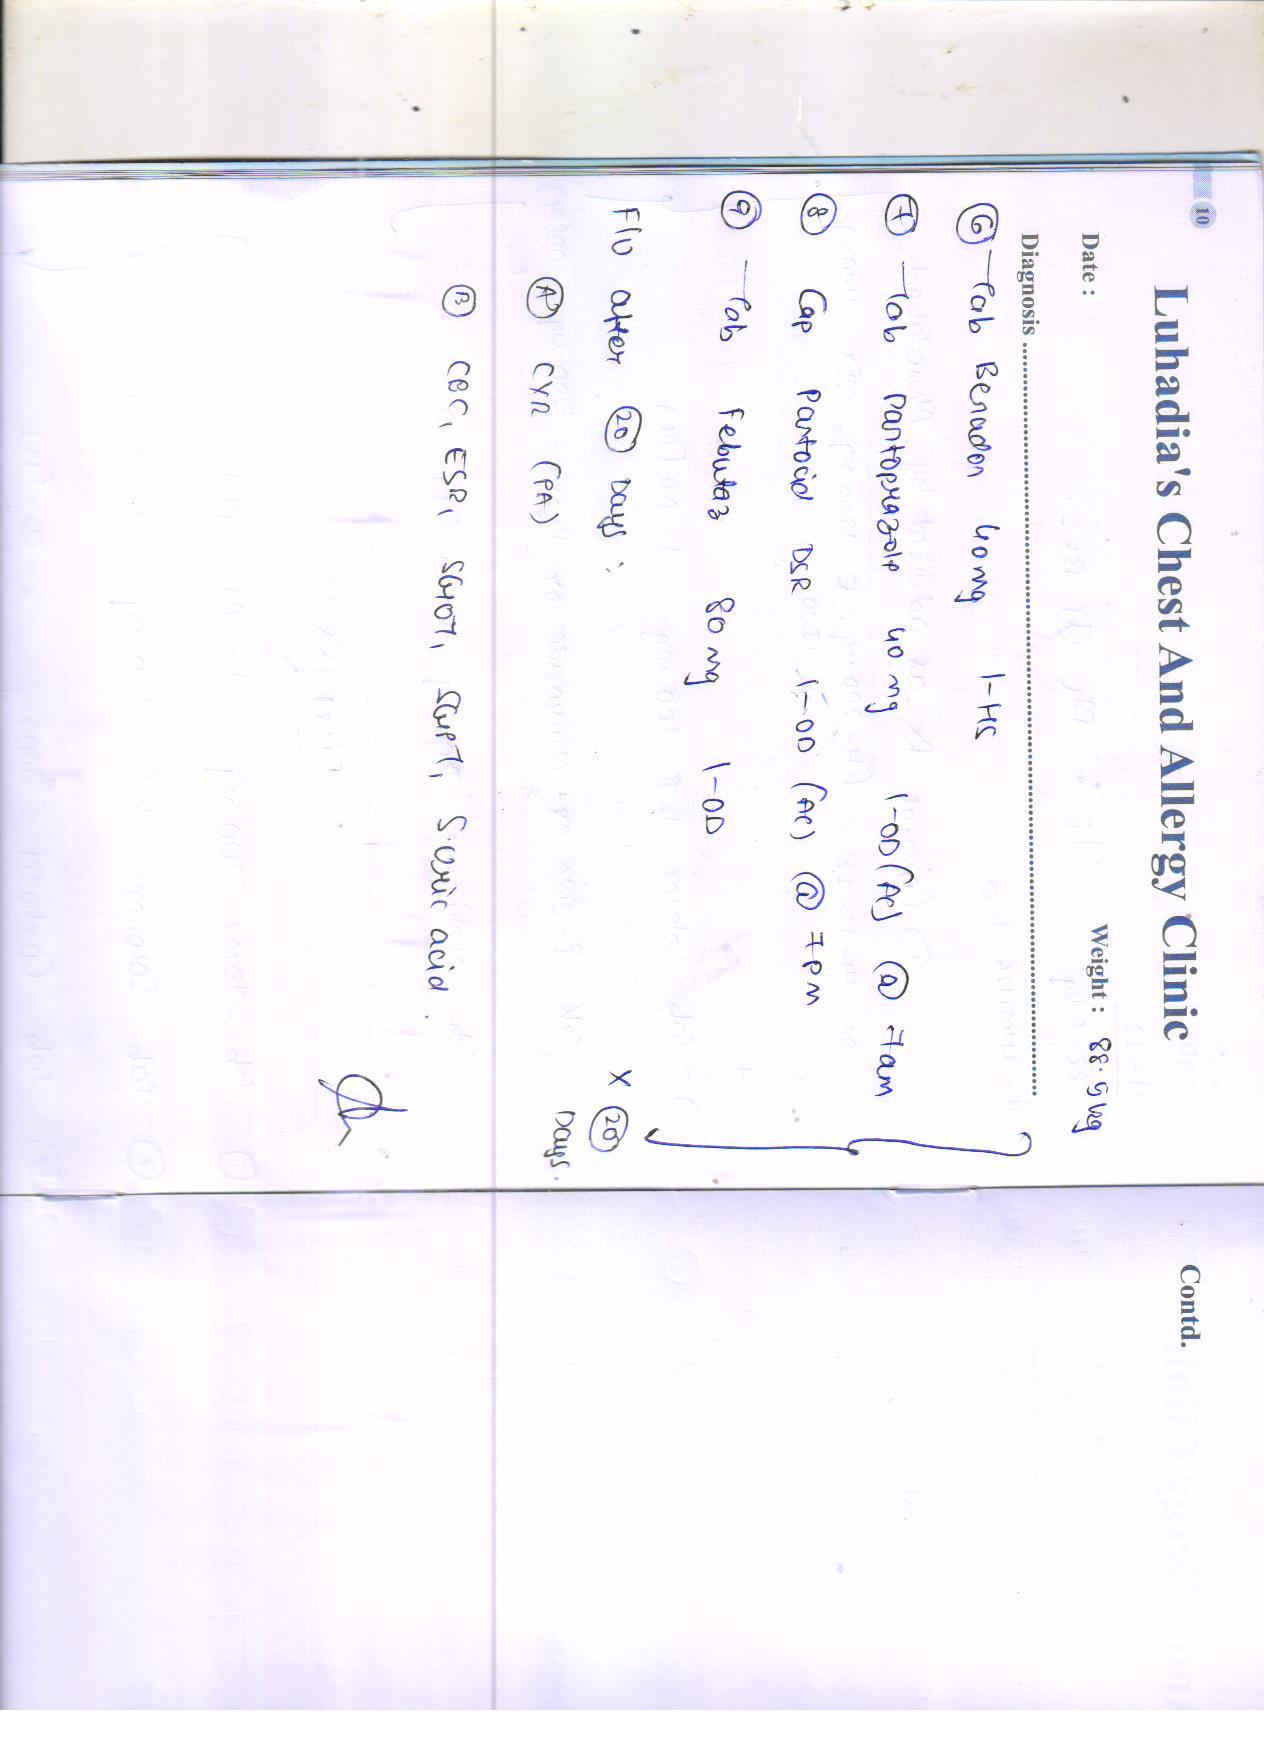 10
Luhadia's Chest And Allergy Clinic
Date : Weight : 88.5 kg
Diagnosis
6 Tab Benadon 40 mg 1-HS
7 Tab Pantoprazole 40 mg 1-OD (AC) @ 7 am
8 Cap Pantocid DSR 1-OD (AC) @ 7 PM
9 Tab Febutaz 80 mg 1-OD
x 20 Days.
F/U after 20 Days :
A CXR (PA)
B CBC, ESR, SGOT, SGPT, S. uric acid.
Contd.